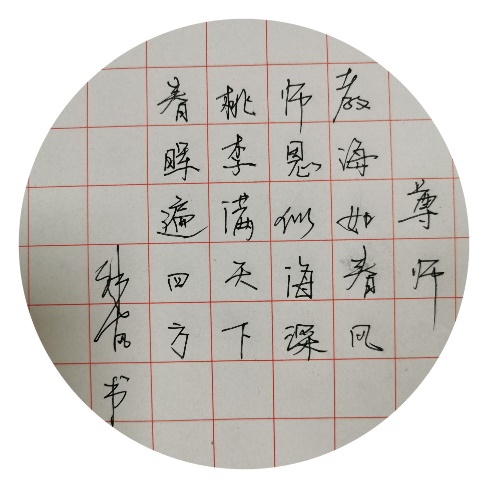 尊师
教诲如春风
师恩似海深
桃李满天下
春晖遍四方
书